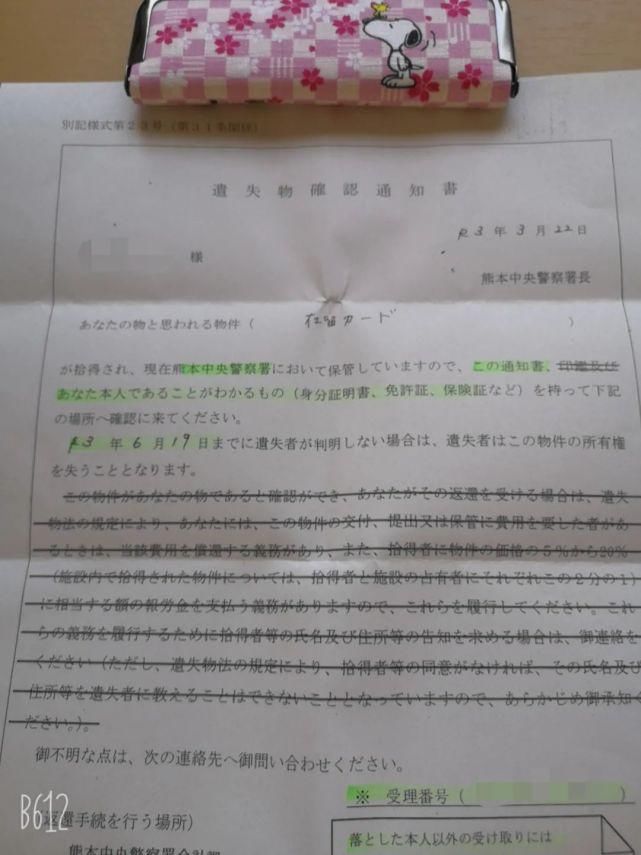 別記様式第23号(第31条関係)
遺失物確認通知書
R3年3月22日
様
熊本中央警察署長
あなたの物と思われる物件( 在留カード )
が拾得され、現在熊本中央警察署において保管していますので、この通知書、印鑑及び
あなた本人であることがわかるもの(身分証明書、免許証、保険証など)を持って下記
の場所へ確認に来てください。
R3年6月19日までに遺失者が判明しない場合は、遺失者はこの物件の所有権
を失うこととなります。
この物件があなたの物であると確認ができ、あなたがその返還を受ける場合は、遺失
物法の規定により、あなたには、この物件の交付、提出又は保管に費用を要した者があ
るときは、当該費用を償還する義務があり、また、拾得者に物件の価格の5%から20%
(施設内で拾得された物件については、拾得者と施設の占有者にそれぞれこの2分の1)
に相当する額の報労金を支払う義務がありますので、これらを履行してください。これ
らの義務を履行するために拾得者等の氏名及び住所等の告知を求める場合は、御連絡を
ください(ただし、遺失物法の規定により、拾得者等の同意がなければ、その氏名及び
住所等を遺失者に教えることはできないこととなっていますので、あらかじめ御承知く
ださい。)。
御不明な点は、次の連絡先へ御問い合わせください。
※ 受理番号( )
(返還手続を行う場所)
落とした本人以外の受け取りには
熊本中央警察署会計課
B612